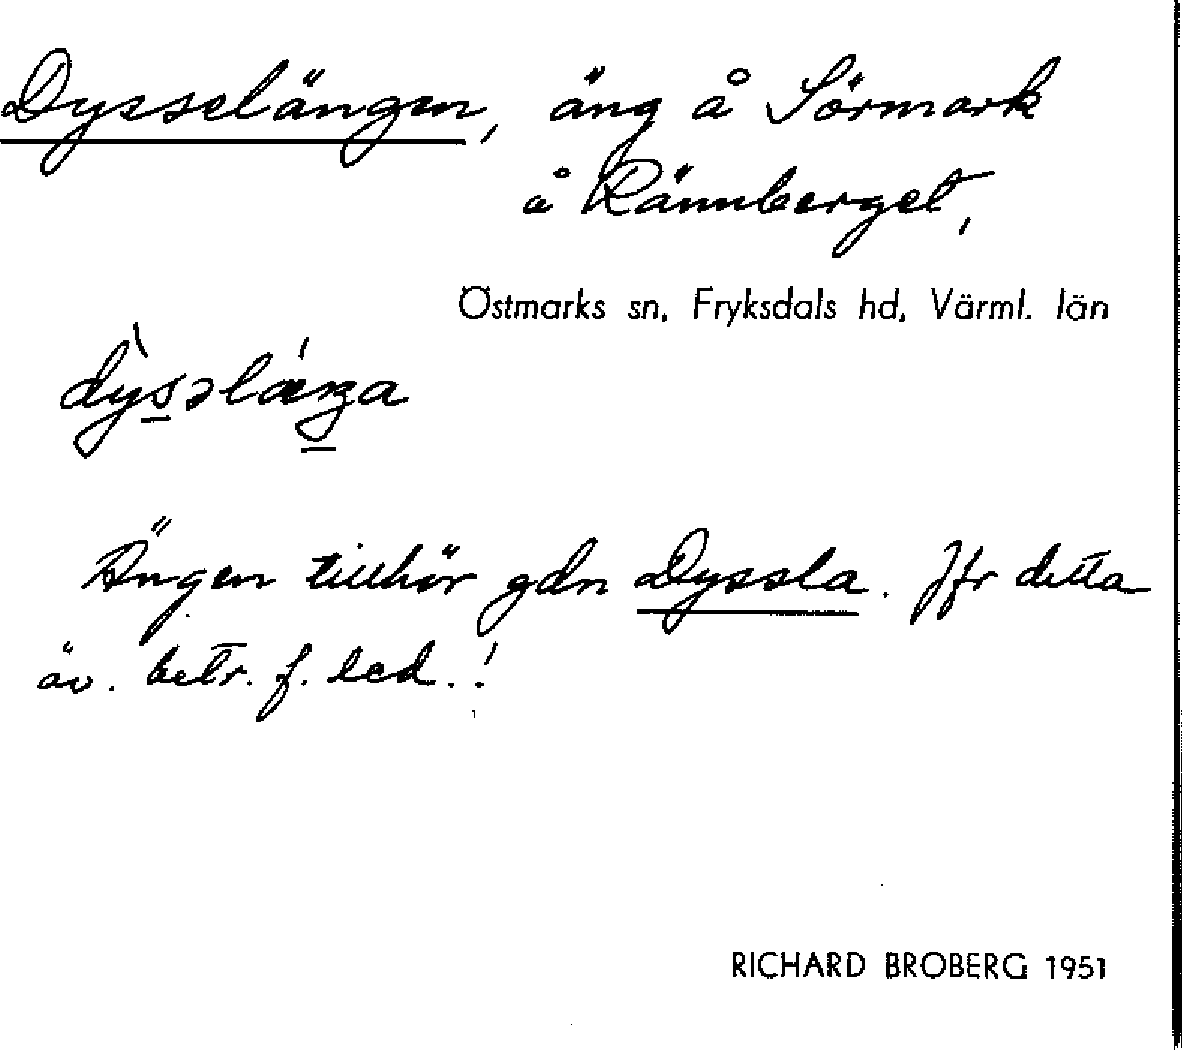 Dysselängen, äng å Sörmark
å Rännberget,
Östmarks sn, Fryksdals hd, Värml. län
dỳsəlä́ŋa
Ängen tillhör gdn Dyssla. Jfr detta
äv. betr. f. led.!
RICHARD BROBERG 1951